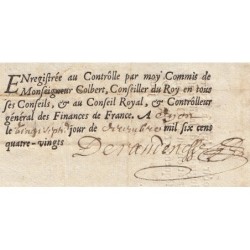 ENregistrée au Contrôlle par moy Commis de
Monsaigueur Colbert, Conseiller du Roy en tous
ses Conseils, & au Conseil Royal, & Contrôlleur
général des Finances de France. A
le jour de mil six cens
quatre-vingts